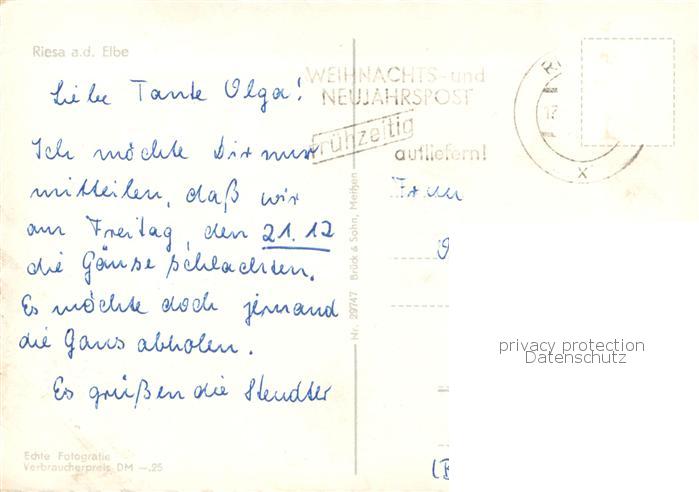 Riesa a.d. Elbe
WEIHNACHTS- und
NEUJAHRSPOST
Frühzeitig
aufliefern!
Liebe Tante Olga!
Ich möchte Dir nur
mitteilen, daß wir
am Freitag, den 21.12
die Gänse schlachten.
Es möchte doch jemand
die Gans abholen.
Es grüßen die Stendter
Frau
Nr. 29747 Brück & Sohn, Meißen
privacy protection
Datenschutz
Echte Fotografie
Verbraucherpreis DM —.25